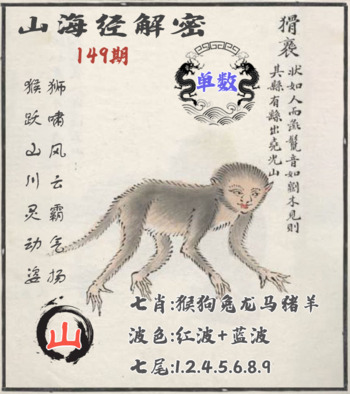 山海经解密
149期
猾褢
状如人而彘鬣音如斲木见则
其縣有繇出尧光山
单数
狮啸风云霸气扬
猴跃山川灵动姿
七肖:猴狗兔龙马猪羊
波色:红波+蓝波
七尾:1.2.4.5.6.8.9
山